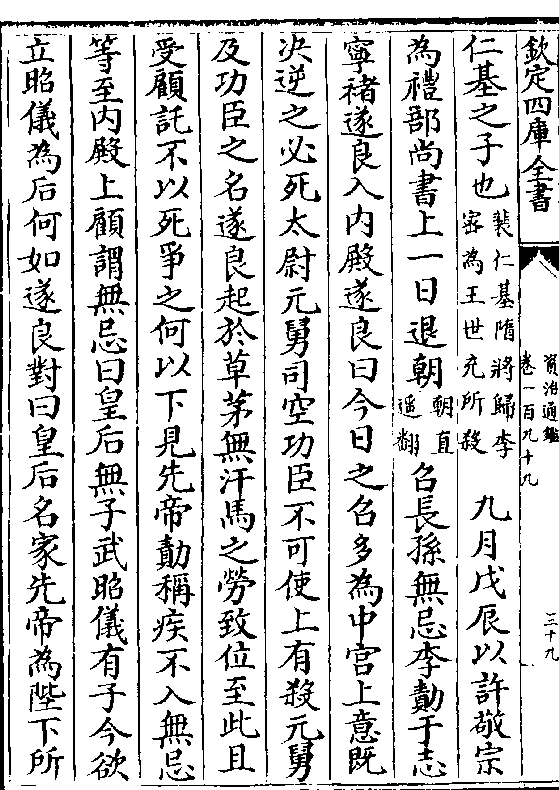 欽定四庫全書
資治通鑑
卷一百九十九
三十九
仁基之子也裴仁基隋將歸李密為王世充所殺九月戊辰以許敬宗
為禮部尚書上一日退朝朝直遥翻召長孫無忌李勣于志
寧褚遂良入内殿遂良曰今日之召多為中宫上意既
決逆之必死太尉元舅司空功臣不可使上有殺元舅
及功臣之名遂良起於草茅無汗馬之勞致位至此且
受顧託不以死爭之何以下見先帝勣稱疾不入無忌
等至内殿上顧謂無忌曰皇后無子武昭儀有子今欲
立昭儀為后何如遂良對曰皇后名家先帝為陛下所